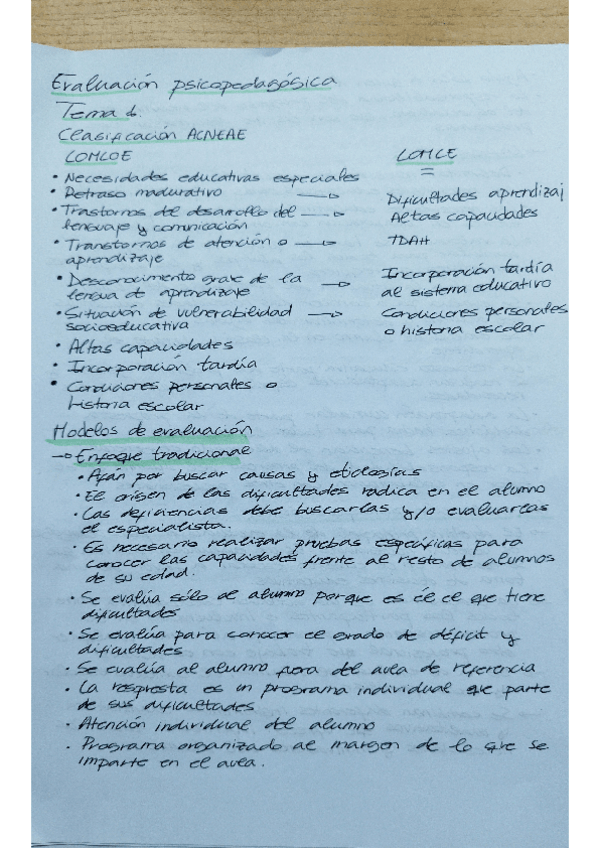 Evaluación psicopedagógica
Tema 1.
Clasificación ACNEAE
LOMLOE
LOMCE
• Necesidades educativas especiales
• Retraso madurativo
Dificultades aprendizaj
• Trastornos del desarrollo del
lenguaje y comunicación
Altas capacidades
• Transtornos de atención o
aprendizaje
TDAH
• Desconocimiento grave de la
lengua de aprendizaje
Incorporación tardía
al sistema educativo
• Situación de vulnerabilidad
socioeducativa
Condiciones personales
o historia escolar
• Altas capacidades
• Incorporación tardía
• Condiciones personales o
historia escolar
Modelos de evaluación
→ Enfoque tradicional
• Afán por buscar causas y etiologías
• El origen de las dificultades radica en el alumno
• Las deficiencias debe buscarlas y/o evaluarlas
el especialista.
• Es necesario realizar pruebas específicas para
conocer las capacidades frente al resto de alumnos
de su edad.
• Se evalúa sólo al alumno porque es él el que tiene
dificultades
• Se evalúa para conocer el grado de déficit y
dificultades
• Se evalúa al alumno fuera del aula de referencia
• La respuesta es un programa individual que parte
de sus dificultades
• Atención individual del alumno
• Programa organizado al margen de lo que se
imparte en el aula.